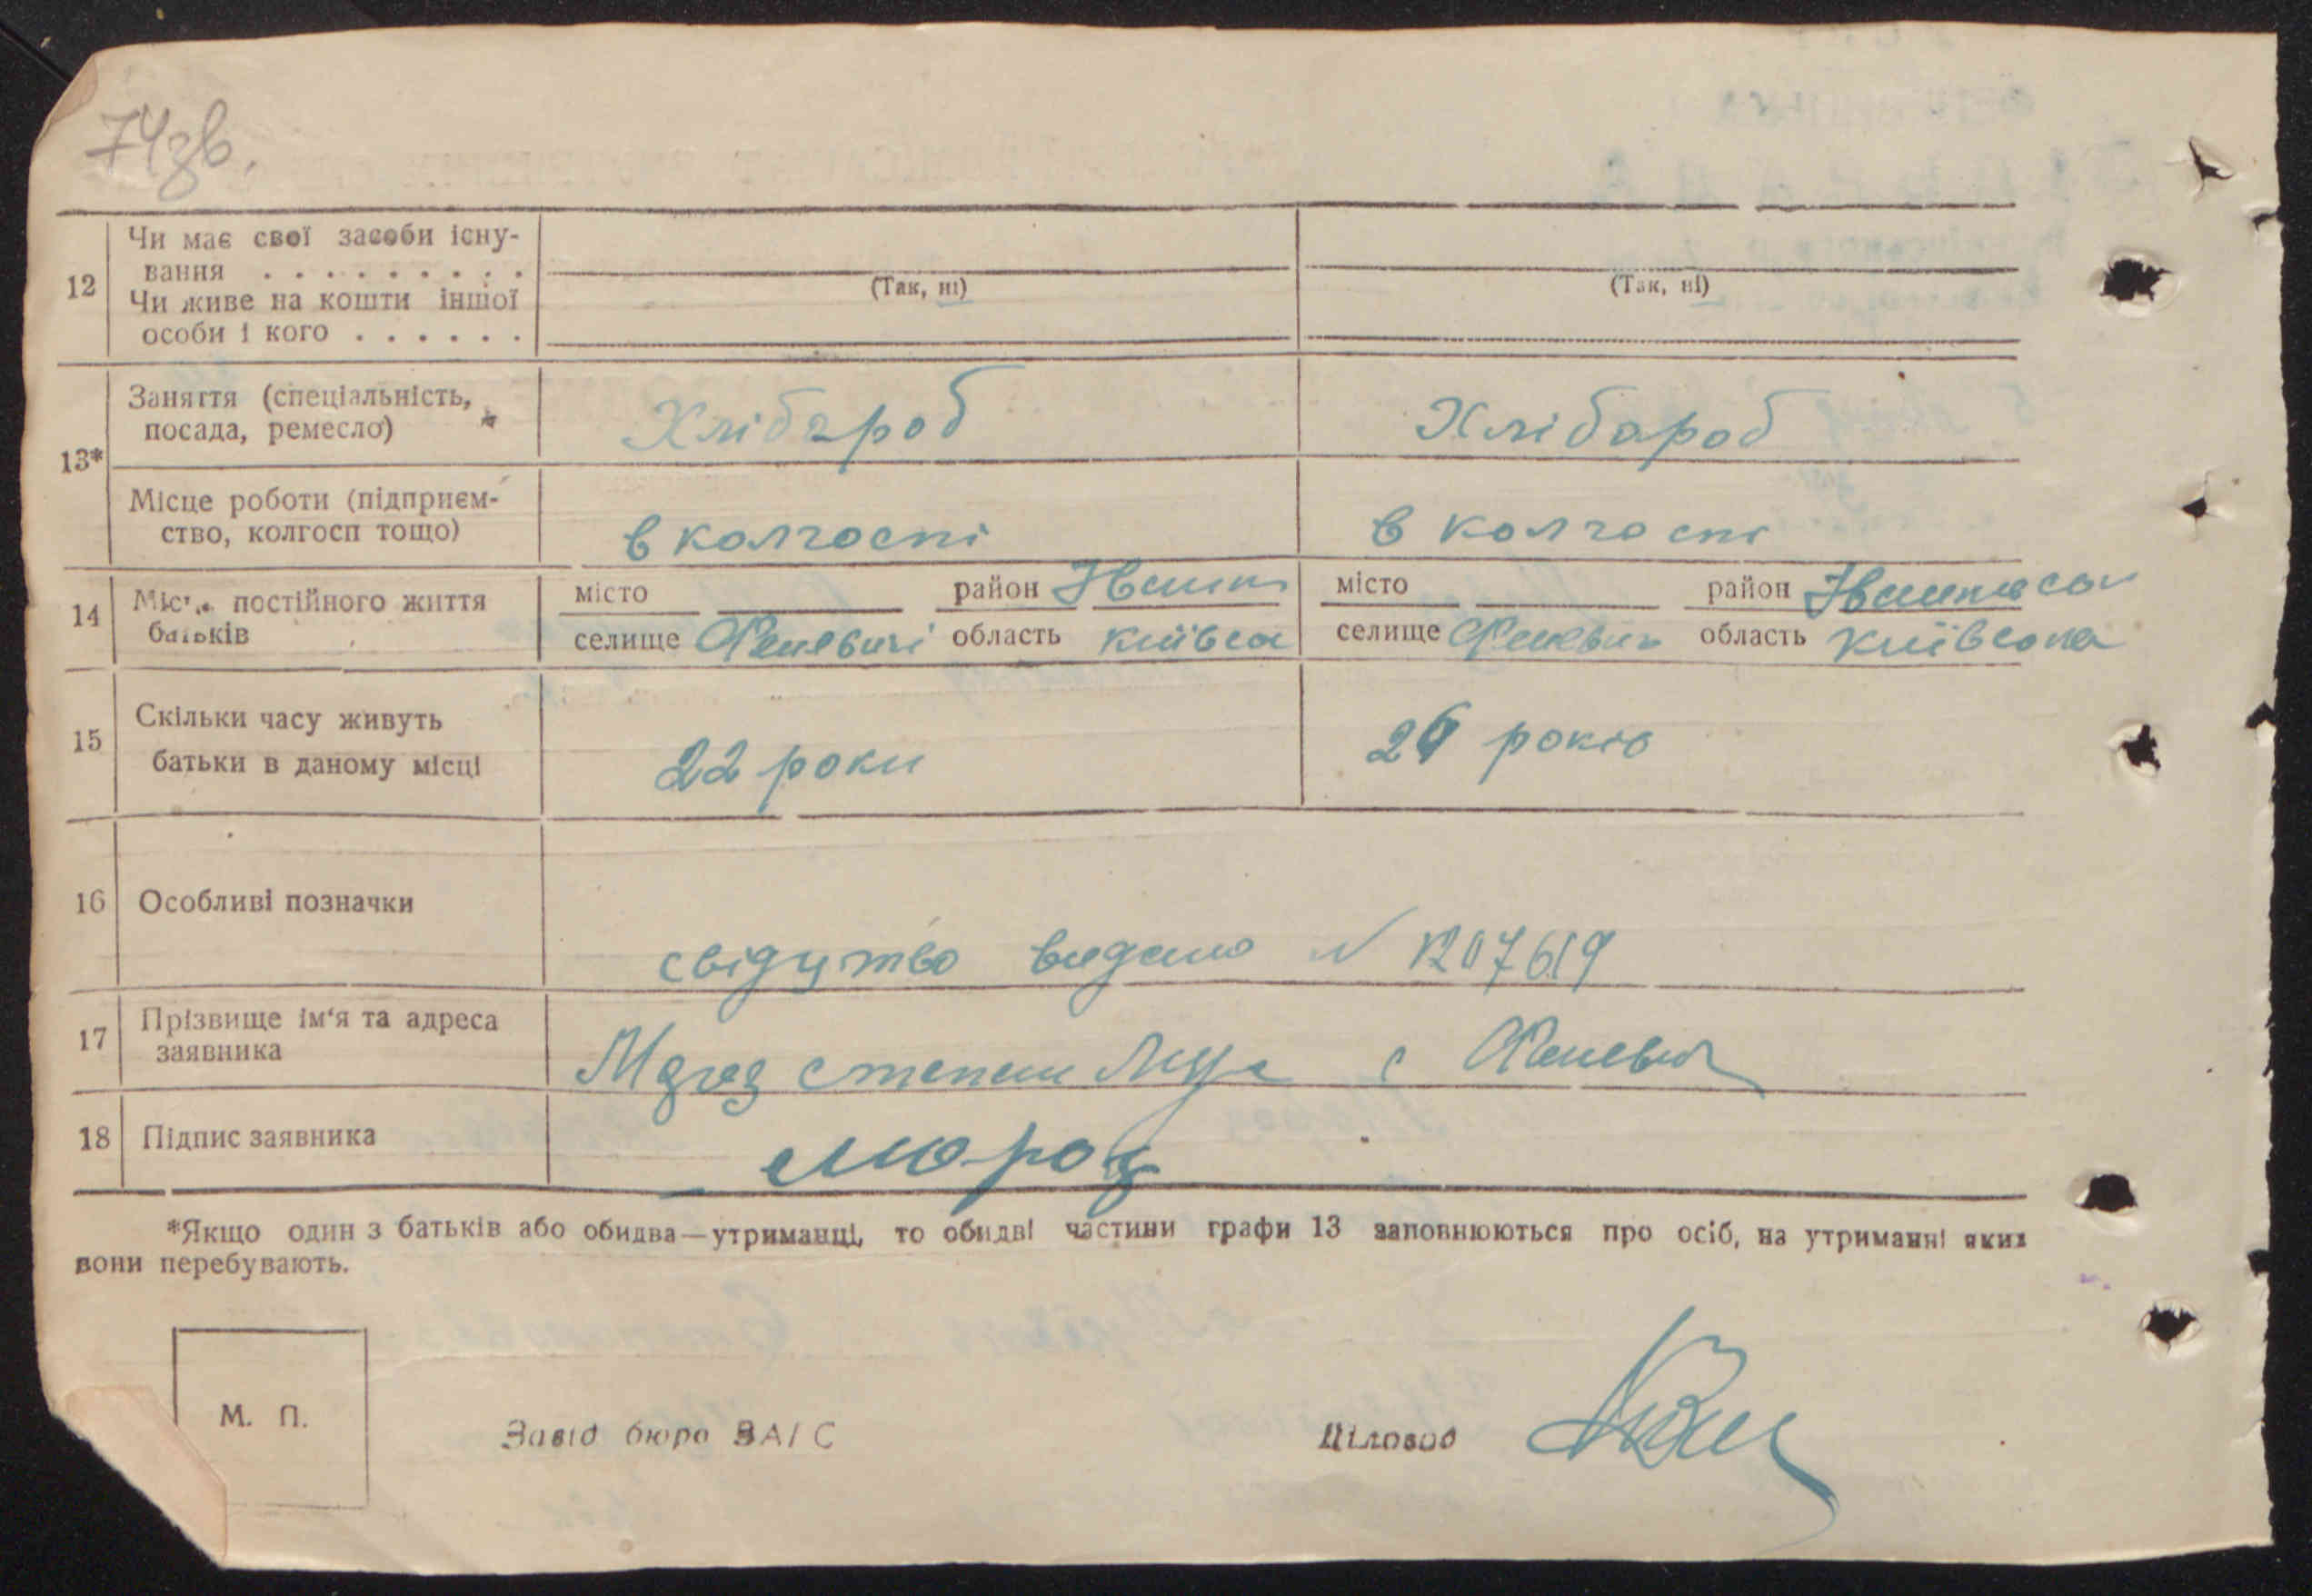 74зв.
12 Чи має свої засоби існу-
вання . . . . . . . . .
Чи живе на кошти іншої
особи і кого . . . . . .
(Так, ні) (Так, ні)
13* Заняття (спеціальність,
посада, ремесло)
Хлібороб Хлібороб
Місце роботи (підприєм-
ство, колгосп тощо)
в колгоспі в колгоспі
14 Місце постійного життя
батьків
місто район місто район
селище Феневичі область київська селище Феневичі область київська
15 Скільки часу живуть
батьки в даному місці
22 роки років
16 Особливі позначки
свідуцтво видано N 1207619
17 Прізвище ім'я та адреса
заявника
Мороз степан с Феневичі
18 Підпис заявника
мороз
*Якщо один з батьків або обидва—утриманці, то обидві частини графи 13 заповнюються про осіб, на утриманні яких
вони перебувають.
М. П.
Завід бюро ЗАГС Діловод